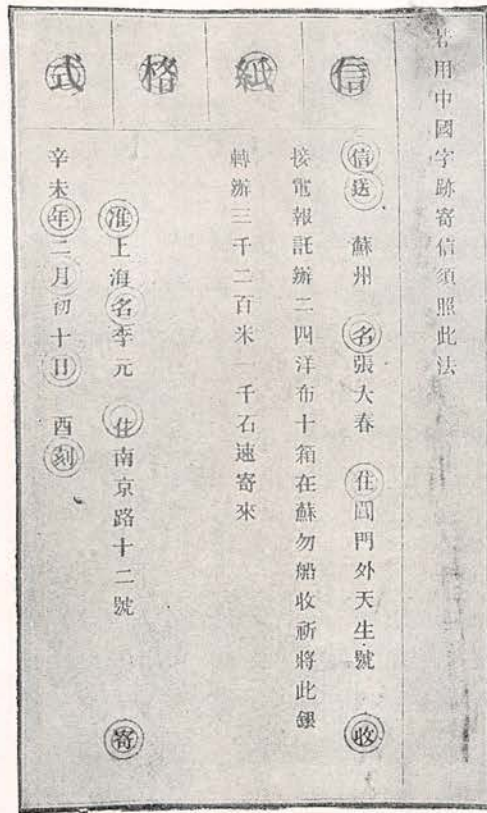 若用中國字跡寄信須照此法
信紙格式
信送 蘇州 名張大春 住閶門外天生號 收
接電報託辦二四洋布十箱在蘇勿船收祈將此銀
轉辦三千二百米一千石速寄來
准上海名李元 住南京路十二號 寄
辛未年二月初十日 酉刻